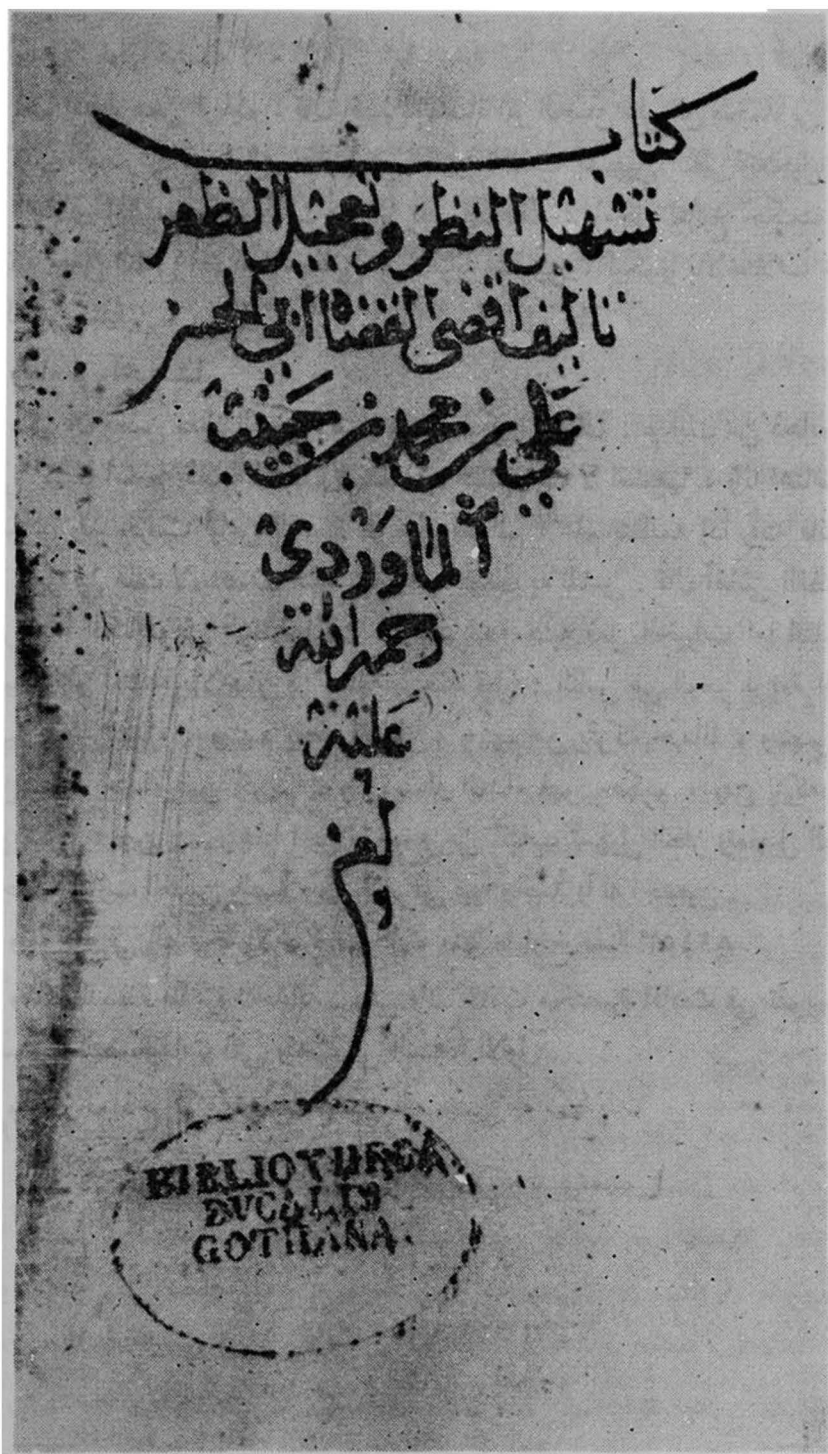 كتاب
تسهيل النظر وتعجيل الظفر
تاليف اقضى القضاة ابي الحسن
علي بن محمد بن حبيب
الماوردي
رحمة الله
عليه
BIBLIOTHECA
DUCALIS
GOTHANA.